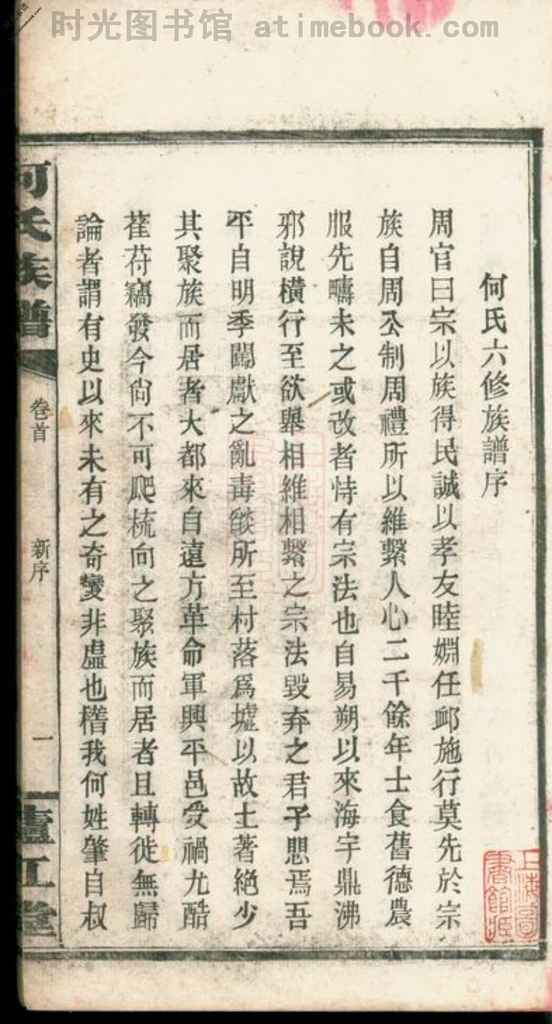 时光图书馆 atimebook.com
何氏六修族譜序
周官曰宗以族得民誠以孝友睦婣任卹施行莫先於宗
族自周公制周禮所以維繫人心二千餘年士食舊德農
服先疇未之或改者恃有宗法也自易朔以來海宇鼎沸
邪說橫行至欲舉相維相繫之宗法毀弃之君子惄焉吾
平自明季闖獻之亂毒燄所至村落爲墟以故土著絶少
其聚族而居者大都來自遠方革命軍興平邑受禍尤酷
萑苻竊發今尙不可爬梳向之聚族而居者且轉徙無歸
論者謂有史以來未有之奇變非虛也稽我何姓肇自叔
何氏族譜
卷首
新序
一
廬江堂
上海圖
書館藏